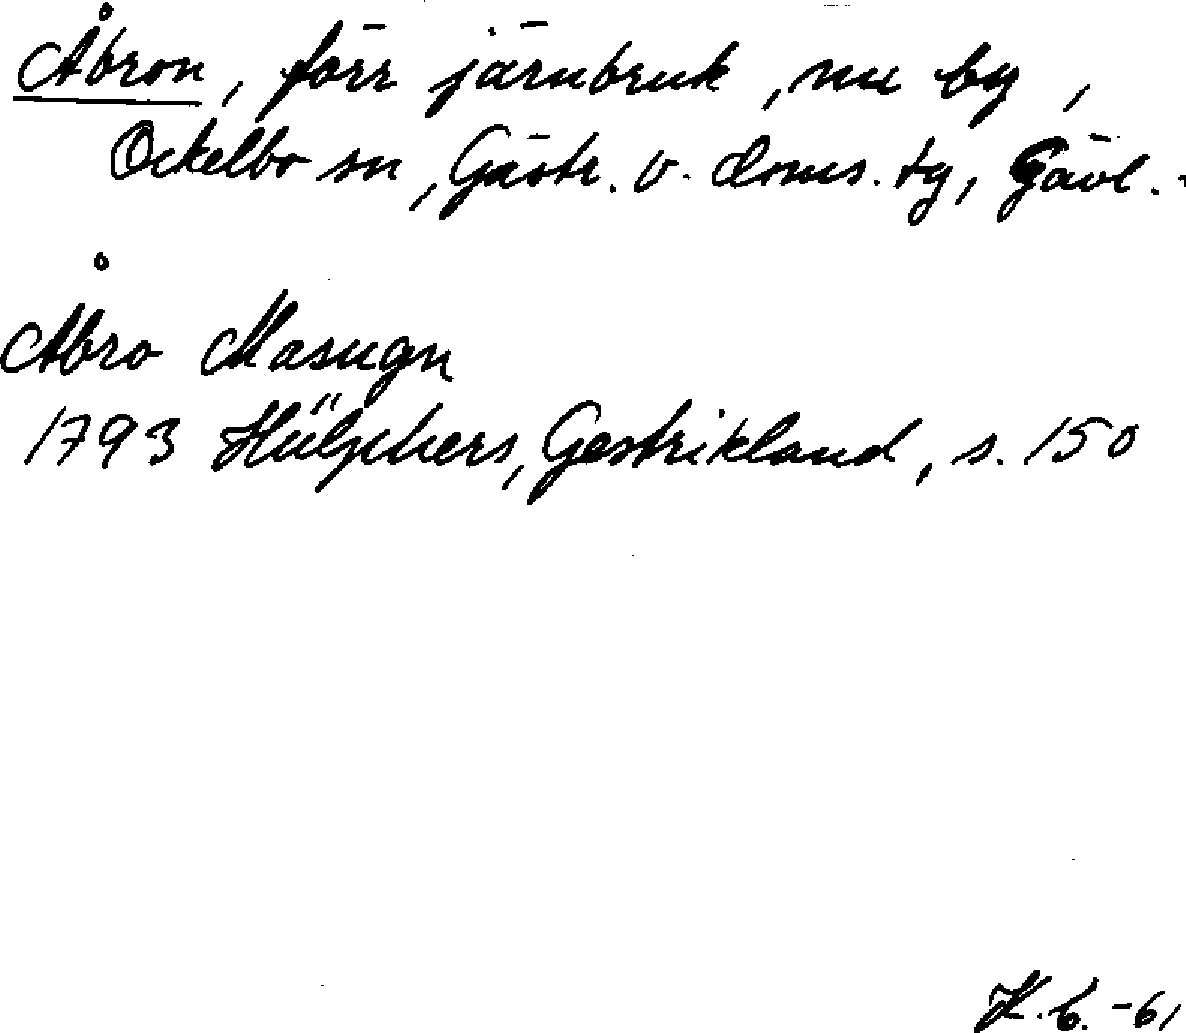 Åbron, förr järnbruk, nu by,
Ockelbo sn, Gästr. v. doms. tg, Gävl.
Åbro Masugn
1793 Hülphers, Gestrikland, s. 150
K.b. -61